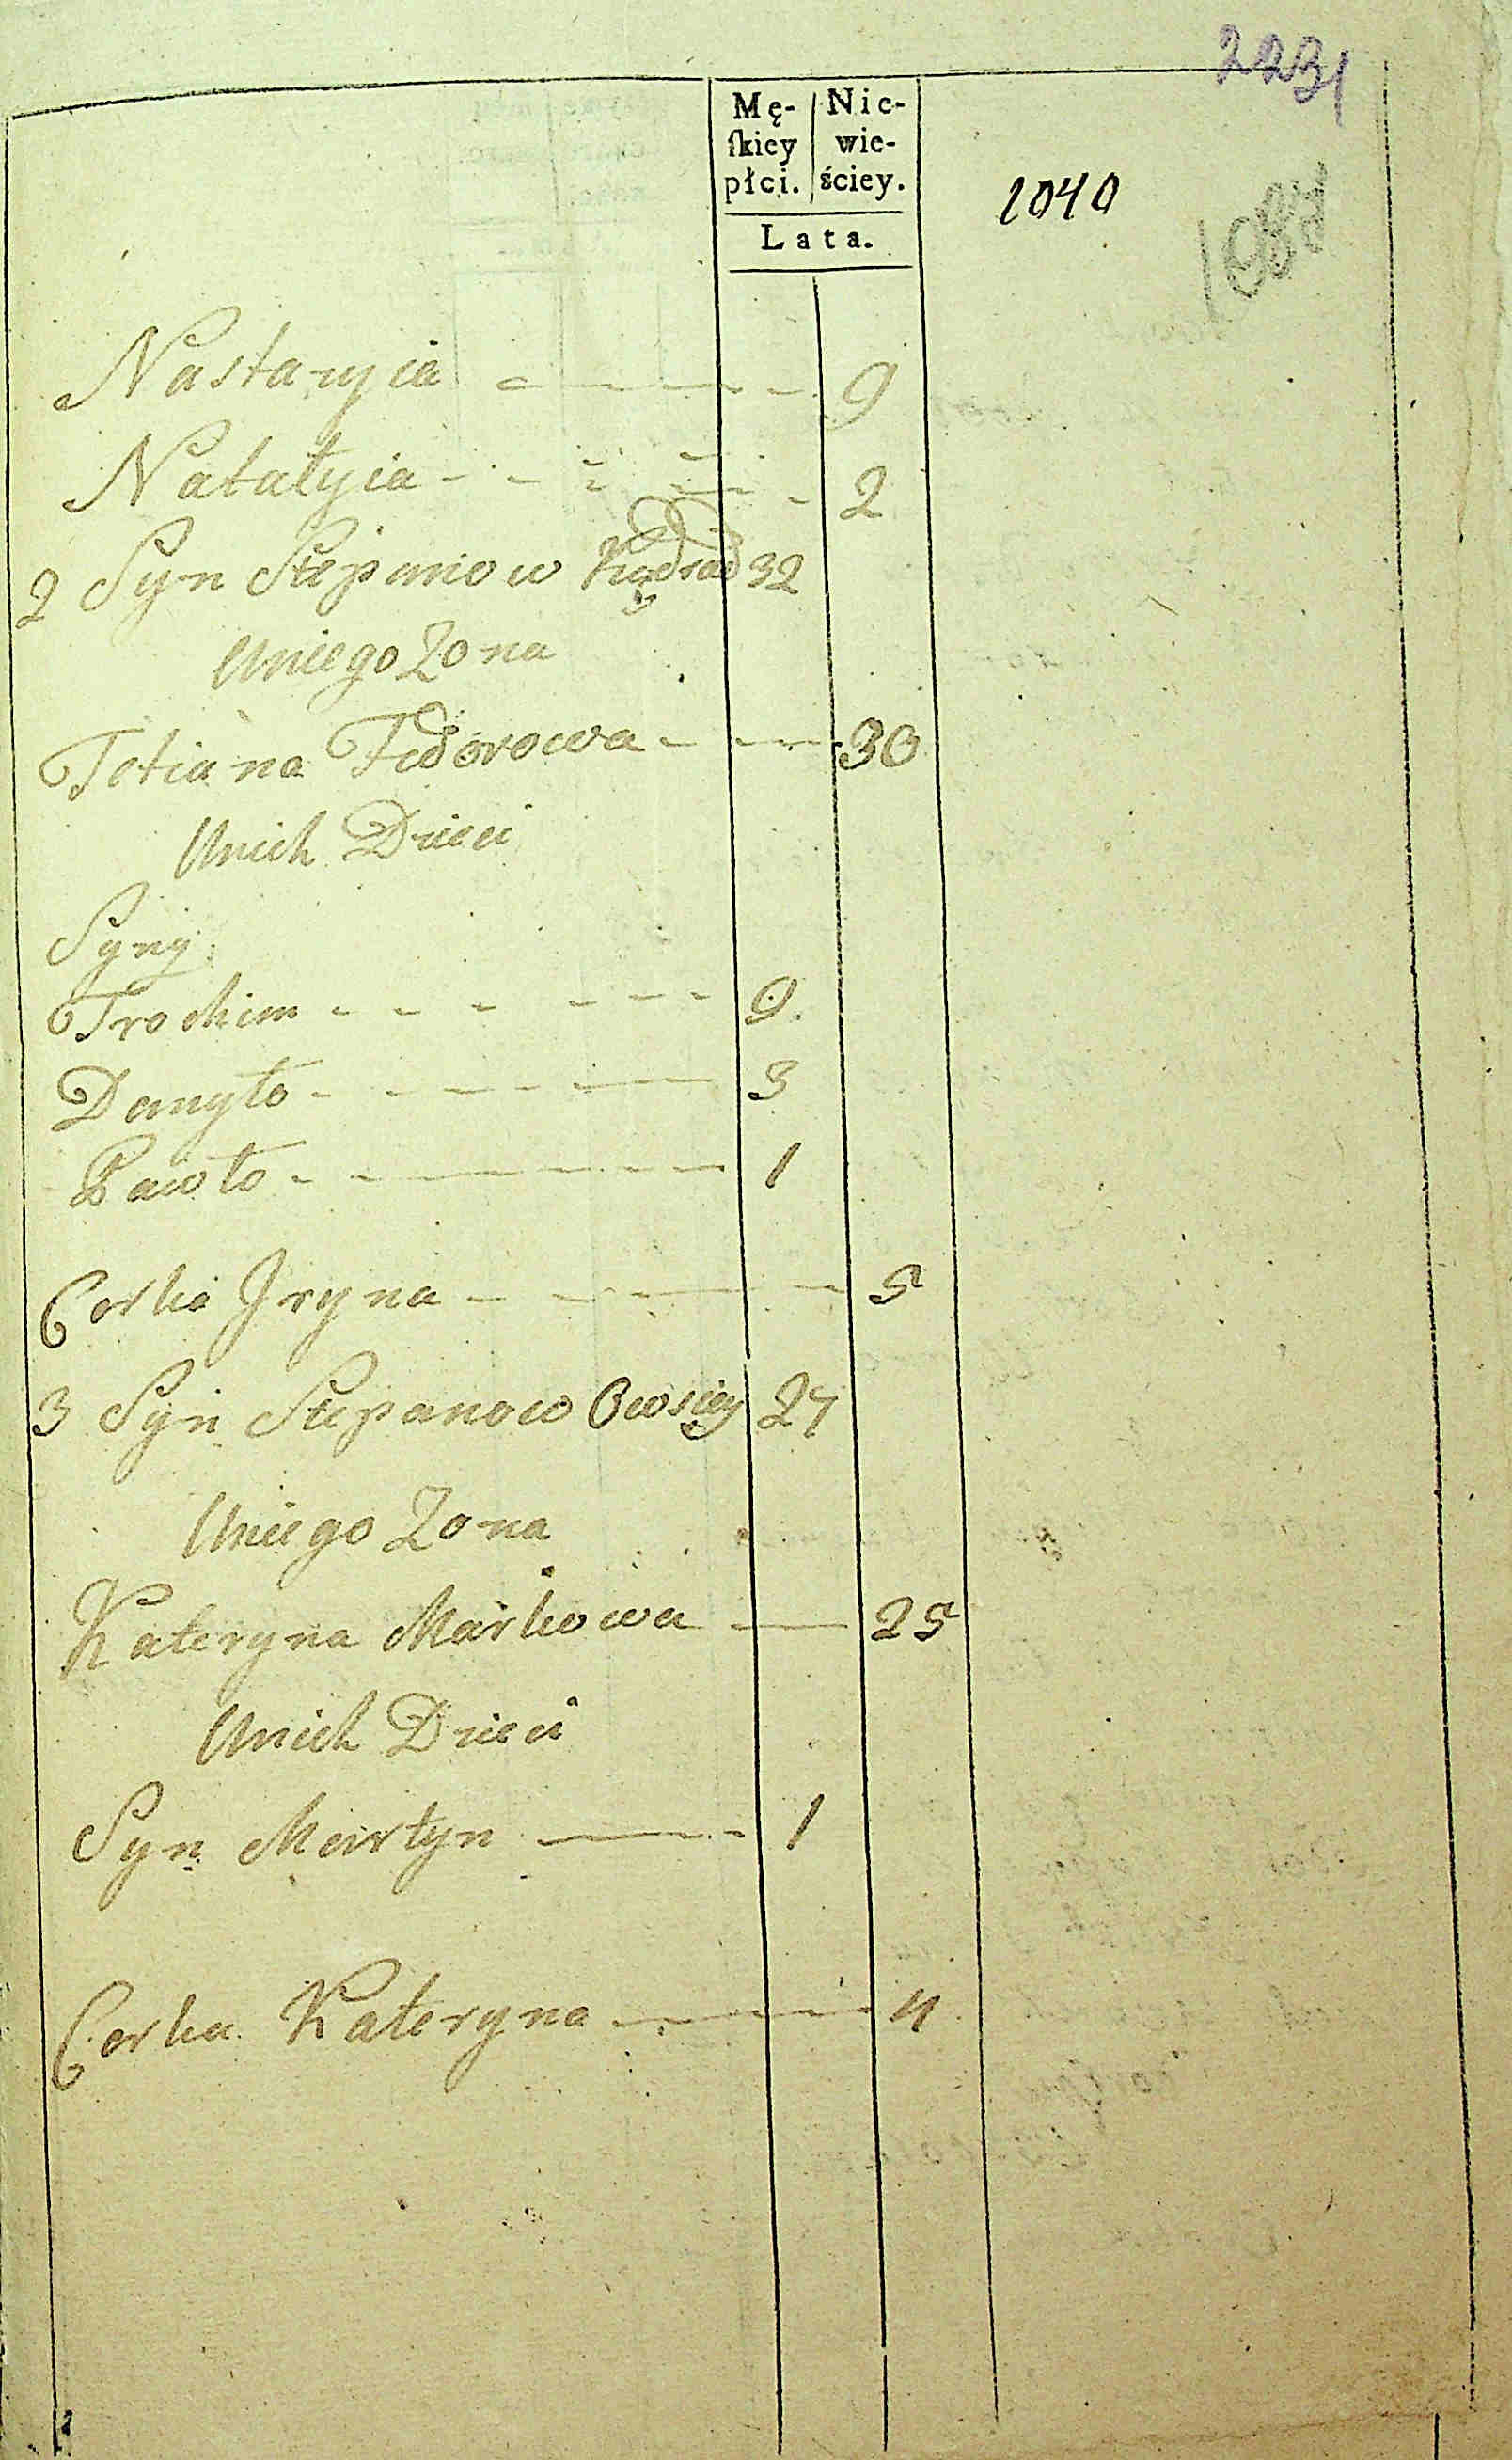 2231
Mę-
ſkiey
płci.
Nie-
wie-
ściey.
Lata.
1040
Nastazyia 9
Natalyia 2
2 Syn Stepanow Kądrad 32
Uniego Zona
Tetiana Fedorowa 30
Unich Dzieci
Syny
Trochim 9
Danyło 3
Pawło 1
Corka Jryna 5
3 Syn Stepanow Owsiey 27
Uniego Zona
Kateryna Markowa 25
Unich Dzieci
Syn Martyn 1
Corka Kateryna 4